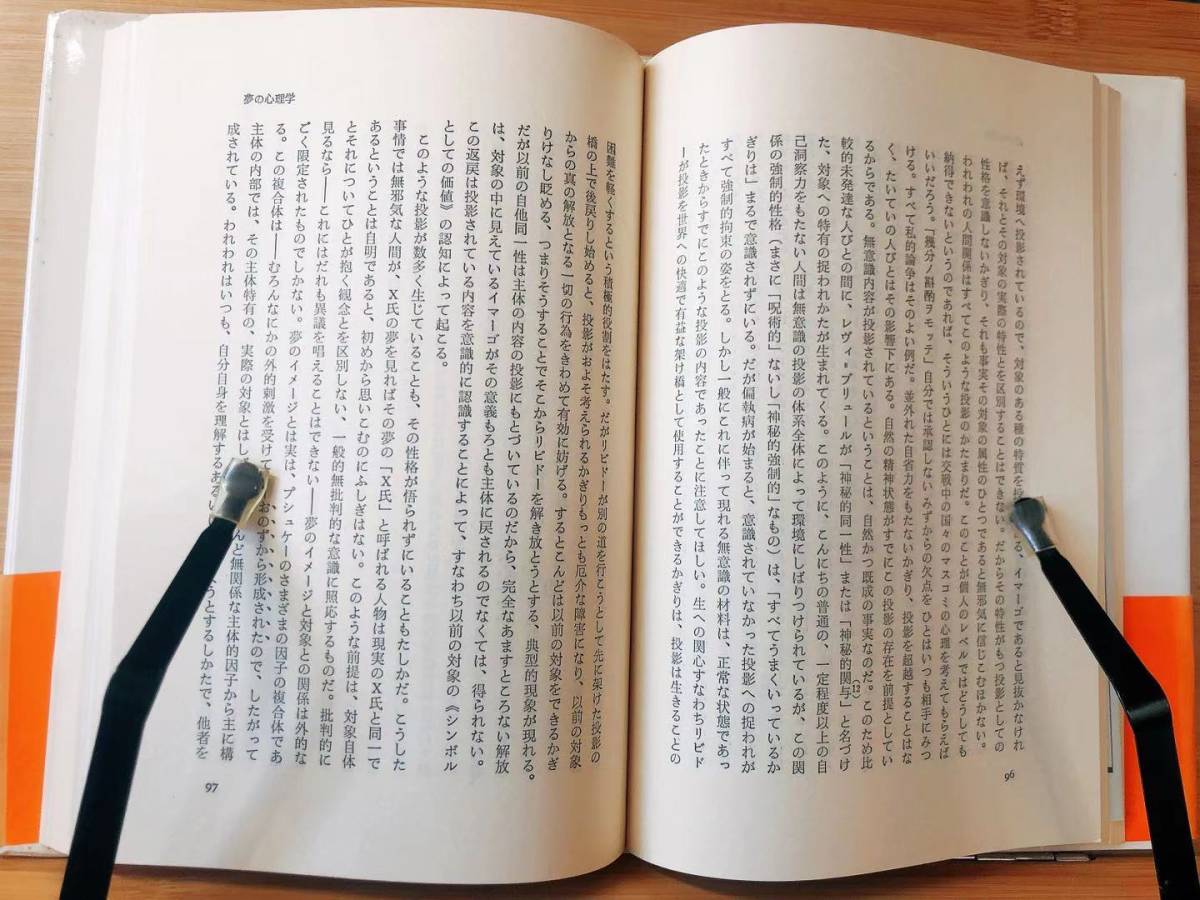 えず環境へ投影されているので、対象のある種の特質を投
る、イマーゴであると見抜かなけれ
ば、それとその対象の実際の特性とを区別することはできない。だからその特性がもつ投影としての
性格を意識しないかぎり、それも事実その対象の属性のひとつであると無邪気に信じこむほかない。
われわれの人間関係はすべてこのような投影のかたまりだ。このことが個人のレベルではどうしても
納得できないというのであれば、そういうひとには交戦中の国々のマスコミの心理を考えてもらえば
いいだろう。「幾分ノ斟酌ヲモッテ」自分では承認しないみずからの欠点をひとはいつも相手にみつ
ける。すべて私的論争はそのよい例だ。並外れた自省力をもたないかぎり、投影を超越することはな
く、たいていの人びとはその影響下にある。自然の精神状態がすでにこの投影の存在を前提としてい
るからである。無意識内容が投影されているということは、自然かつ既成の事実なのだ。このため比
較的未発達な人びとの間に、レヴィ＝ブリュールが「神秘的同一性」または「神秘的関与」と名づけ
(12)
た、対象への特有の捉われかたが生まれてくる。このように、こんにちの普通の、一定程度以上の自
己洞察力をもたない人間は無意識の投影の体系全体によって環境にしばりつけられているが、この関
係の強制的性格（まさに「呪術的」ないし「神秘的強制的」なもの）は、「すべてうまくいっているか
ぎりは」まるで意識されずにいる。だが偏執病が始まると、意識されていなかった投影への捉われが
すべて強制的拘束の姿をとる。しかし一般にこれに伴って現れる無意識の材料は、正常な状態であっ
たときからすでにこのような投影の内容であったことに注意してほしい。生への関心すなわちリビド
ーが投影を世界への快適で有益な架け橋として使用することができるかぎりは、投影は生きることの
96
困難を軽くするという積極的役割をはたす。だがリビドーが別の道を行こうとして先に架けた投影の
橋の上で後戻りし始めると、投影がおよそ考えられるかぎりもっとも厄介な障害になり、以前の対象
からの真の解放となる一切の行為をきわめて有効に妨げる。するとこんどは以前の対象をできるかぎ
りけなし貶める、つまりそうすることでそこからリビドーを解き放とうとする、典型的現象が現れる。
だが以前の自他同一性は主体の内容の投影にもとづいているのだから、完全なあますところない解放
は、対象の中に見えているイマーゴがその意義もろとも主体に戻されるのでなくては、得られない。
この返戻は投影されている内容を意識的に認識することによって、すなわち以前の対象の《シンボル
としての価値》の認知によって起こる。
このような投影が数多く生じていることも、その性格が悟られずにいることもたしかだ。こうした
事情では無邪気な人間が、X氏の夢を見ればその夢の「X氏」と呼ばれる人物は現実のX氏と同一で
あるということは自明であると、初めから思いこむのにふしぎはない。このような前提は、対象自体
とそれについてひとが抱く観念とを区別しない、一般的無批判的な意識に照応するものだ。批判的に
見るなら――これにはだれも異議を唱えることはできない――夢のイメージと対象との関係は外的な
ごく限定されたものでしかない。夢のイメージとは実は、プシュケーのさまざまの因子の複合体であ
る。この複合体は――むろんなにかの外的刺激を受けて
おのずから形成されたので、したがって
主体の内部では、その主体特有の、実際の対象とはし
んど無関係な主体的因子から主に構
成されている。われわれはいつも、自分自身を理解するある
ようとするしかたで、他者を
夢の心理学
97